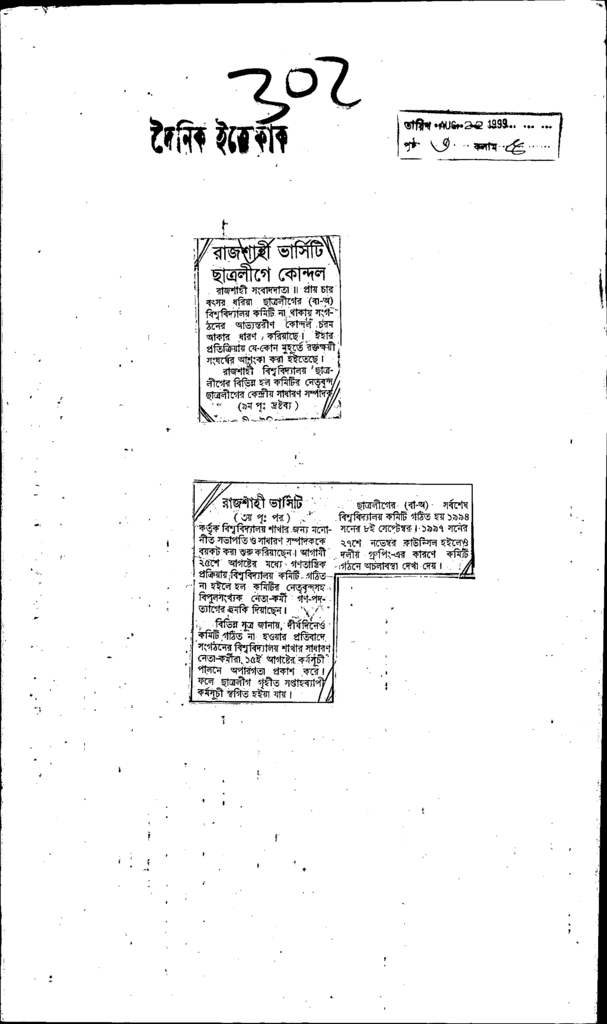 ৩০২
দৈনিক ইত্তেফাক
তারিখ AUG 22 1999
পৃষ্ঠা ৩ কলাম ৫
রাজশাহী ভার্সিটি
ছাত্রলীগে কোন্দল
রাজশাহী সংবাদদাতা ॥ প্রায় চার
বৎসর ধরিয়া ছাত্রলীগের (বা-অ)
বিশ্ববিদ্যালয় কমিটি না থাকায় সংগ-
ঠনের আভ্যন্তরীণ কোন্দল চরম
আকার ধারণ করিয়াছে। ইহার
প্রতিক্রিয়ায় যে-কোন মুহূর্তে রক্তক্ষয়ী
সংঘর্ষের আশংকা করা হইতেছে।
রাজশাহী বিশ্ববিদ্যালয় ছাত্র-
লীগের বিভিন্ন হল কমিটির নেতৃবৃন্দ
ছাত্রলীগের কেন্দ্রীয় সাধারণ সম্পাদক
(৯ম পৃঃ দ্রষ্টব্য)
রাজশাহী ভার্সিটি
(৩য় পৃঃ পর)
কর্তৃক বিশ্ববিদ্যালয় শাখার জন্য মনো-
নীত সভাপতি ও সাধারণ সম্পাদককে
বয়কট করা শুরু করিয়াছেন। আগামী
২৫শে আগষ্টের মধ্যে গণতান্ত্রিক
প্রক্রিয়ায় বিশ্ববিদ্যালয় কমিটি গঠিত
না হইলে হল কমিটির নেতৃবৃন্দসহ
বিপুলসংখ্যক নেতা-কর্মী গণ-পদ-
ত্যাগের হুমকি দিয়াছেন।
বিভিন্ন সূত্র জানায়, দীর্ঘদিনেও
কমিটি গঠিত না হওয়ার প্রতিবাদে
সংগঠনের বিশ্ববিদ্যালয় শাখার সাধারণ
নেতা-কর্মীরা ১৫ই আগষ্টের কর্মসূচী
পালনে অপারগতা প্রকাশ করে।
ফলে ছাত্রলীগ গৃহীত সপ্তাহব্যাপী
কর্মসূচী স্থগিত হইয়া যায়।
ছাত্রলীগের (বা-অ) সর্বশেষ
বিশ্ববিদ্যালয় কমিটি গঠিত হয় ১৯৯৪
সনের ৮ই সেপ্টেম্বর। ১৯৯৭ সনের
২৭শে নভেম্বর কাউন্সিল হইলেও
দলীয় গ্রুপিং-এর কারণে কমিটি
গঠনে অচলাবস্থা দেখা দেয়।